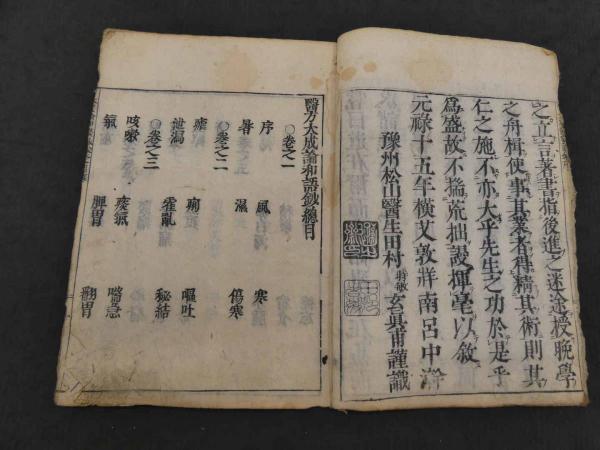 之立言著書指後進之迷途授晚學
之舟楫使事其業者得精其術則其
仁之施不亦大乎先生之功於是乎
為盛故不揣荒拙謾揮毫以敘
元祿十五年橫艾敦牂南呂中澣
豫州松山醫生田村 玄真甫謹識
醫方大成論和語鈔總目
卷之一
序 風 寒
暑 濕 傷寒
卷之二
瘧 痢 嘔吐
泄瀉 霍亂 秘結
卷之三
咳嗽 痰氣 喘急
氣 脾胃 翻胃